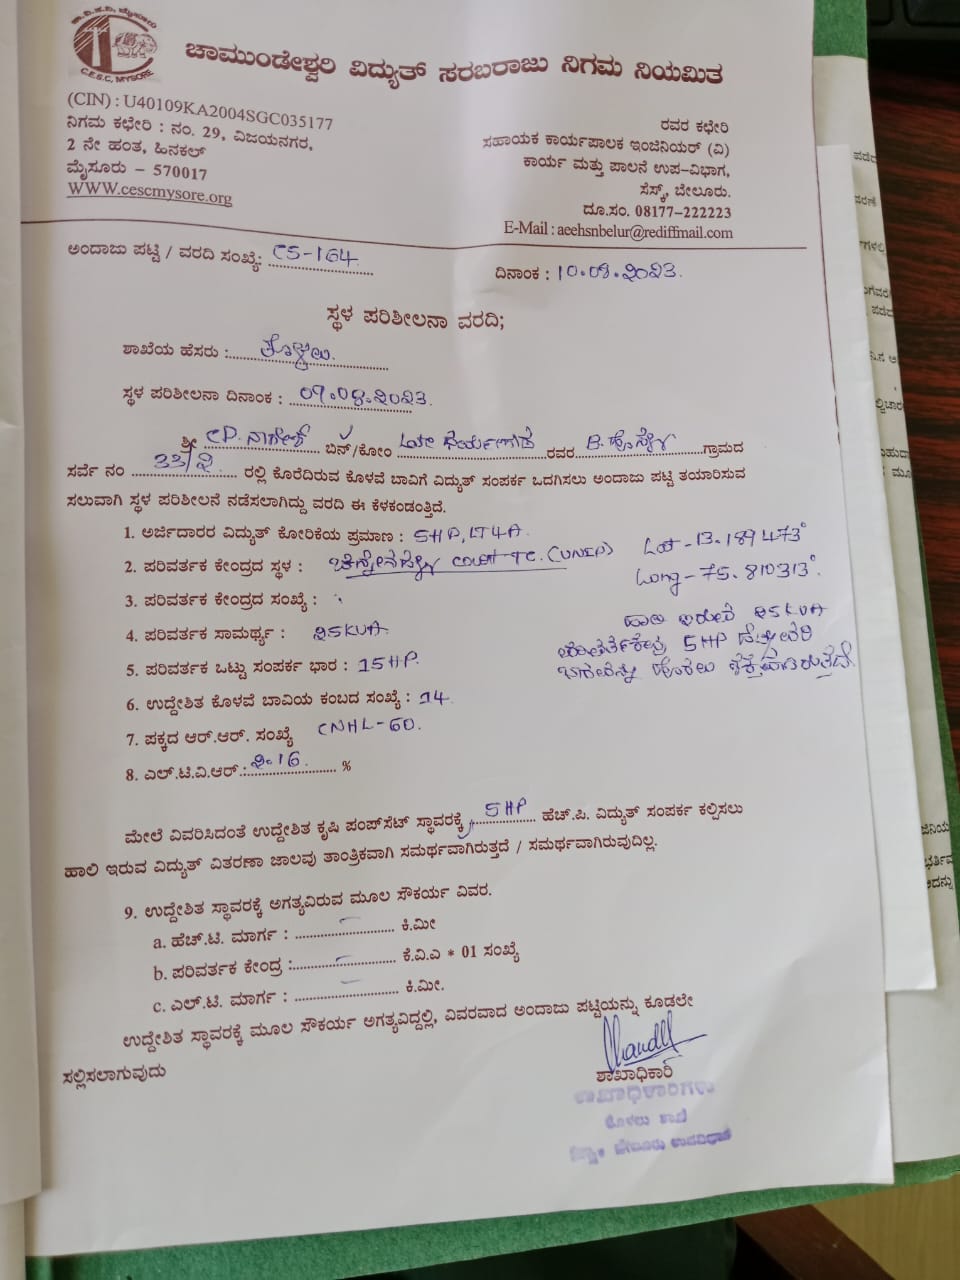 ಕಾ.ವಿ.ಸ.ನಿ. ಮೈಸೂರು
C.E.S.C, MYSORE
ಚಾಮುಂಡೇಶ್ವರಿ ವಿದ್ಯುತ್ ಸರಬರಾಜು ನಿಗಮ ನಿಯಮಿತ
(CIN) : U40109KA2004SGC035177
ನಿಗಮ ಕಛೇರಿ : ನಂ. 29, ವಿಜಯನಗರ,
2 ನೇ ಹಂತ, ಹಿನಕಲ್
ಮೈಸೂರು – 570017
WWW.cescmysore.org
ರವರ ಕಛೇರಿ
ಸಹಾಯಕ ಕಾರ್ಯಪಾಲಕ ಇಂಜಿನಿಯರ್ (ವಿ)
ಕಾರ್ಯ ಮತ್ತು ಪಾಲನೆ ಉಪ-ವಿಭಾಗ,
ಸೆಸ್ಕ್, ಬೇಲೂರು.
ದೂ.ಸಂ. 08177-222223
E-Mail : aeehsnbelur@rediffmail.com
ಅಂದಾಜು ಪಟ್ಟಿ / ವರದಿ ಸಂಖ್ಯೆ: CS-164
ದಿನಾಂಕ : 10.08.2023.
ಸ್ಥಳ ಪರಿಶೀಲನಾ ವರದಿ;
ಶಾಖೆಯ ಹೆಸರು : ತೊಳಲು.
ಸ್ಥಳ ಪರಿಶೀಲನಾ ದಿನಾಂಕ : 09.08.2023.
ಶ್ರೀ CD. ನಾಗೇಶ್ ಬಿನ್/ಕೋಂ ರವರ B. ಹೊಸಳ್ಳಿ ಗ್ರಾಮದ
ಸರ್ವೆ ನಂ 33/2 ರಲ್ಲಿ ಕೊರೆದಿರುವ ಕೊಳವೆ ಬಾವಿಗೆ ವಿದ್ಯುತ್ ಸಂಪರ್ಕ ಒದಗಿಸಲು ಅಂದಾಜು ಪಟ್ಟಿ ತಯಾರಿಸುವ
ಸಲುವಾಗಿ ಸ್ಥಳ ಪರಿಶೀಲನೆ ನಡೆಸಲಾಗಿದ್ದು ವರದಿ ಈ ಕೆಳಕಂಡಂತ್ತಿದೆ.
1. ಅರ್ಜಿದಾರರ ವಿದ್ಯುತ್ ಕೋರಿಕೆಯ ಪ್ರಮಾಣ : 5HP, LT4A
2. ಪರಿವರ್ತಕ ಕೇಂದ್ರದ ಸ್ಥಳ : TC. (UNIP)
Lat - 13.189473°
Long - 75.810313°.
3. ಪರಿವರ್ತಕ ಕೇಂದ್ರದ ಸಂಖ್ಯೆ :
4. ಪರಿವರ್ತಕ ಸಾಮರ್ಥ್ಯ : 25KVA
5. ಪರಿವರ್ತಕ ಒಟ್ಟು ಸಂಪರ್ಕ ಭಾರ : 15HP.
ಹಾಲಿ ಇರುವ 25KVA
ಪರಿವರ್ತಕಕ್ಕೆ 5HP ಹೆಚ್ಚುವರಿ
6. ಉದ್ದೇಶಿತ ಕೊಳವೆ ಬಾವಿಯ ಕಂಬದ ಸಂಖ್ಯೆ : 14
7. ಪಕ್ಕದ ಆರ್.ಆರ್. ಸಂಖ್ಯೆ CNHL-60.
8. ಎಲ್.ಟಿ.ವಿ.ಆರ್.: 2.16 %
ಮೇಲೆ ವಿವರಿಸಿದಂತೆ ಉದ್ದೇಶಿತ ಕೃಷಿ ಪಂಪ್‌ಸೆಟ್ ಸ್ಥಾವರಕ್ಕೆ 5HP ಹೆಚ್.ಪಿ. ವಿದ್ಯುತ್ ಸಂಪರ್ಕ ಕಲ್ಪಿಸಲು
ಹಾಲಿ ಇರುವ ವಿದ್ಯುತ್ ವಿತರಣಾ ಜಾಲವು ತಾಂತ್ರಿಕವಾಗಿ ಸಮರ್ಥವಾಗಿರುತ್ತದೆ / ಸಮರ್ಥವಾಗಿರುವುದಿಲ್ಲ.
9. ಉದ್ದೇಶಿತ ಸ್ಥಾವರಕ್ಕೆ ಅಗತ್ಯವಿರುವ ಮೂಲ ಸೌಕರ್ಯ ವಿವರ.
a. ಹೆಚ್.ಟಿ. ಮಾರ್ಗ : – ಕಿ.ಮೀ
b. ಪರಿವರ್ತಕ ಕೇಂದ್ರ : – ಕೆ.ವಿ.ಎ * 01 ಸಂಖ್ಯೆ
c. ಎಲ್.ಟಿ. ಮಾರ್ಗ : – ಕಿ.ಮೀ.
ಉದ್ದೇಶಿತ ಸ್ಥಾವರಕ್ಕೆ ಮೂಲ ಸೌಕರ್ಯ ಅಗತ್ಯವಿದ್ದಲ್ಲಿ, ವಿವರವಾದ ಅಂದಾಜು ಪಟ್ಟಿಯನ್ನು ಕೂಡಲೇ
ಸಲ್ಲಿಸಲಾಗುವುದು
ಶಾಖಾಧಿಕಾರಿ
ಶಾಖಾಧಿಕಾರಿಗಳು
ತೊಳಲು ಶಾಖೆ
ಬೇಲೂರು ಉಪವಿಭಾಗ